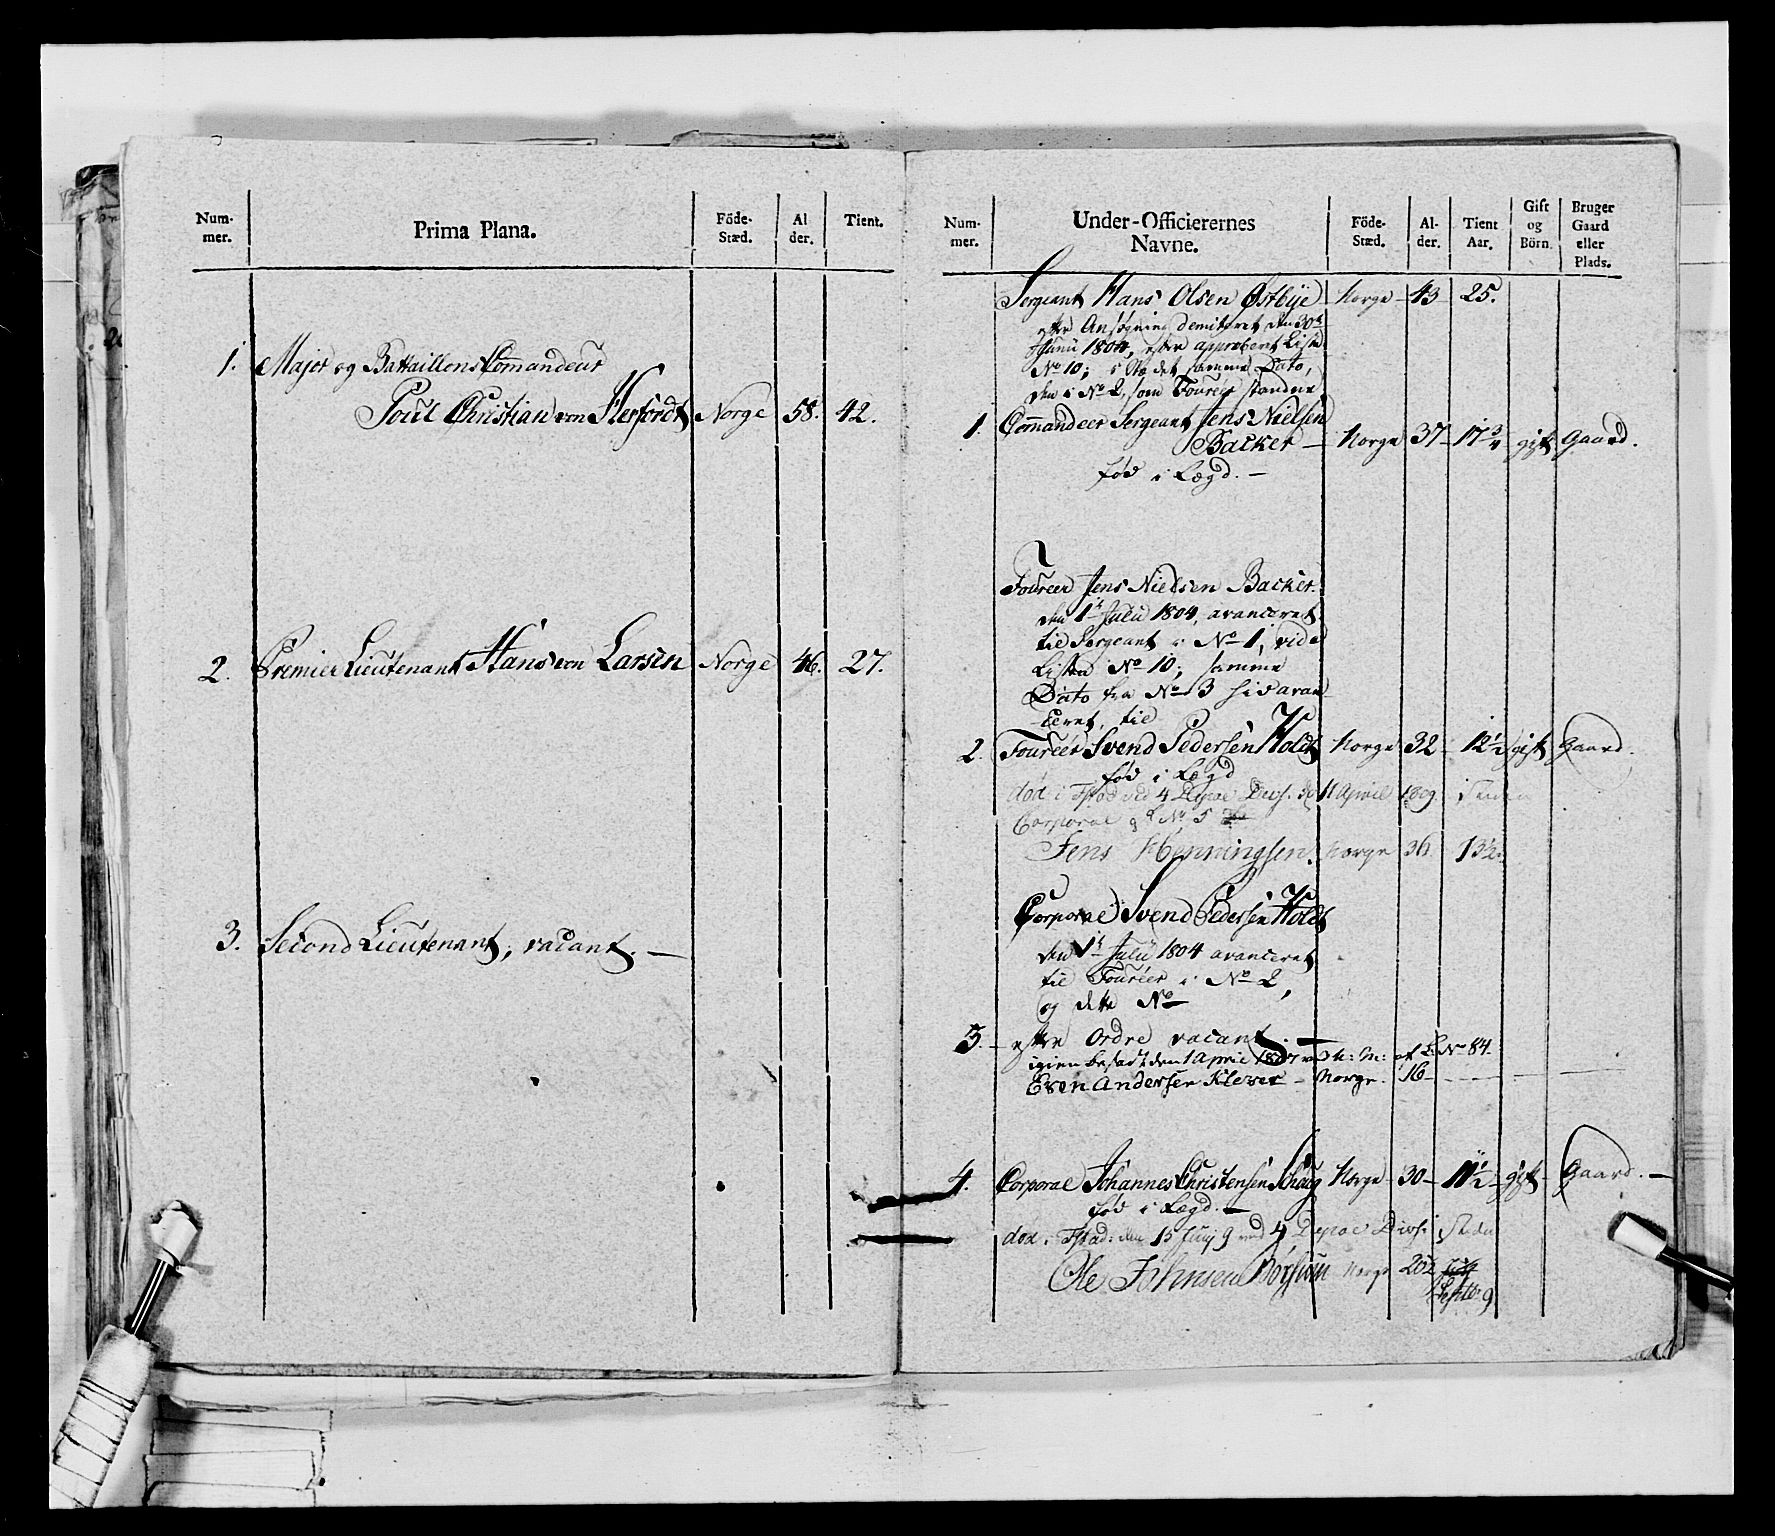 Num-
mer.
Prima Plana.
Föde-
Stæd.
Al
der.
Tient.
1. Major og Battaillons Commandeur
Poul Christian von Herfordt Norge 58. 42.
2. Premier Lieutenant Hans von Larsen Norge 46. 27.
3. Second Lieutenant, vacant. —
Num-
mer.
Under-Officierernes
Navne.
Föde-
Stæd.
Al-
der.
Tient
Aar.
Gift
og
Börn.
Bruger
Gaard
eller
Plads.
Sergeant Hans Olsen Østbye Norge 43 25.
efter Ansøgning demiteret den 30te
Junii 1804, efter approbent Liste
No 10; i Stædet samme Dato,
den i No 2, som Foureer standne
1. Commandeer Sergeant Jens Nielsen
Backer — Norge 37 17 3/4 gift Gaard.
fød i Lægd. —
Foureer Jens Nielsen Backer.
den 1te Julii 1804, avanceret
til Sergeant i No 1, vide
Listen No 10; samme
Dato fra No 3 hid avan
ceret, til
2. Foureer Svend Pedersen Holdt Norge 32 12 1/2 gift Gaard.
fød i Lægd
død i Fstad ved 4 Depot Divs. d 11 April 1809.
Corporal No 5
Jens Henningsen. Norge 36 13 1/2
Corporal Svend Pedersen Holdt
den 1te Julii 1804 avanceret
til Foureer i No 2,
og dette No
3. efter Ordre vacant. —
igien besadt den 1 April 1807 af L. No 84.
Even Andersen Klever — Norge. 16 —
4. Corporal Johannes Christensen Schoug Norge 30 — 11 1/2 gift Gaard. —
fød i Lægd. —
død i Fstad: den 15 Junj 9 ved 4 Depot Divs:
Ole Johnsen Børsum Norge 20
Septb: 9